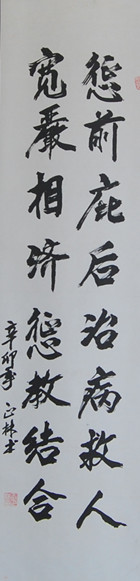 惩前毖后治病救人
寬嚴相济惩教结合
辛卯年正林书